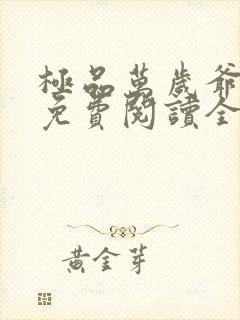 極品萬歲爺
免費閱讀全
黃金芽